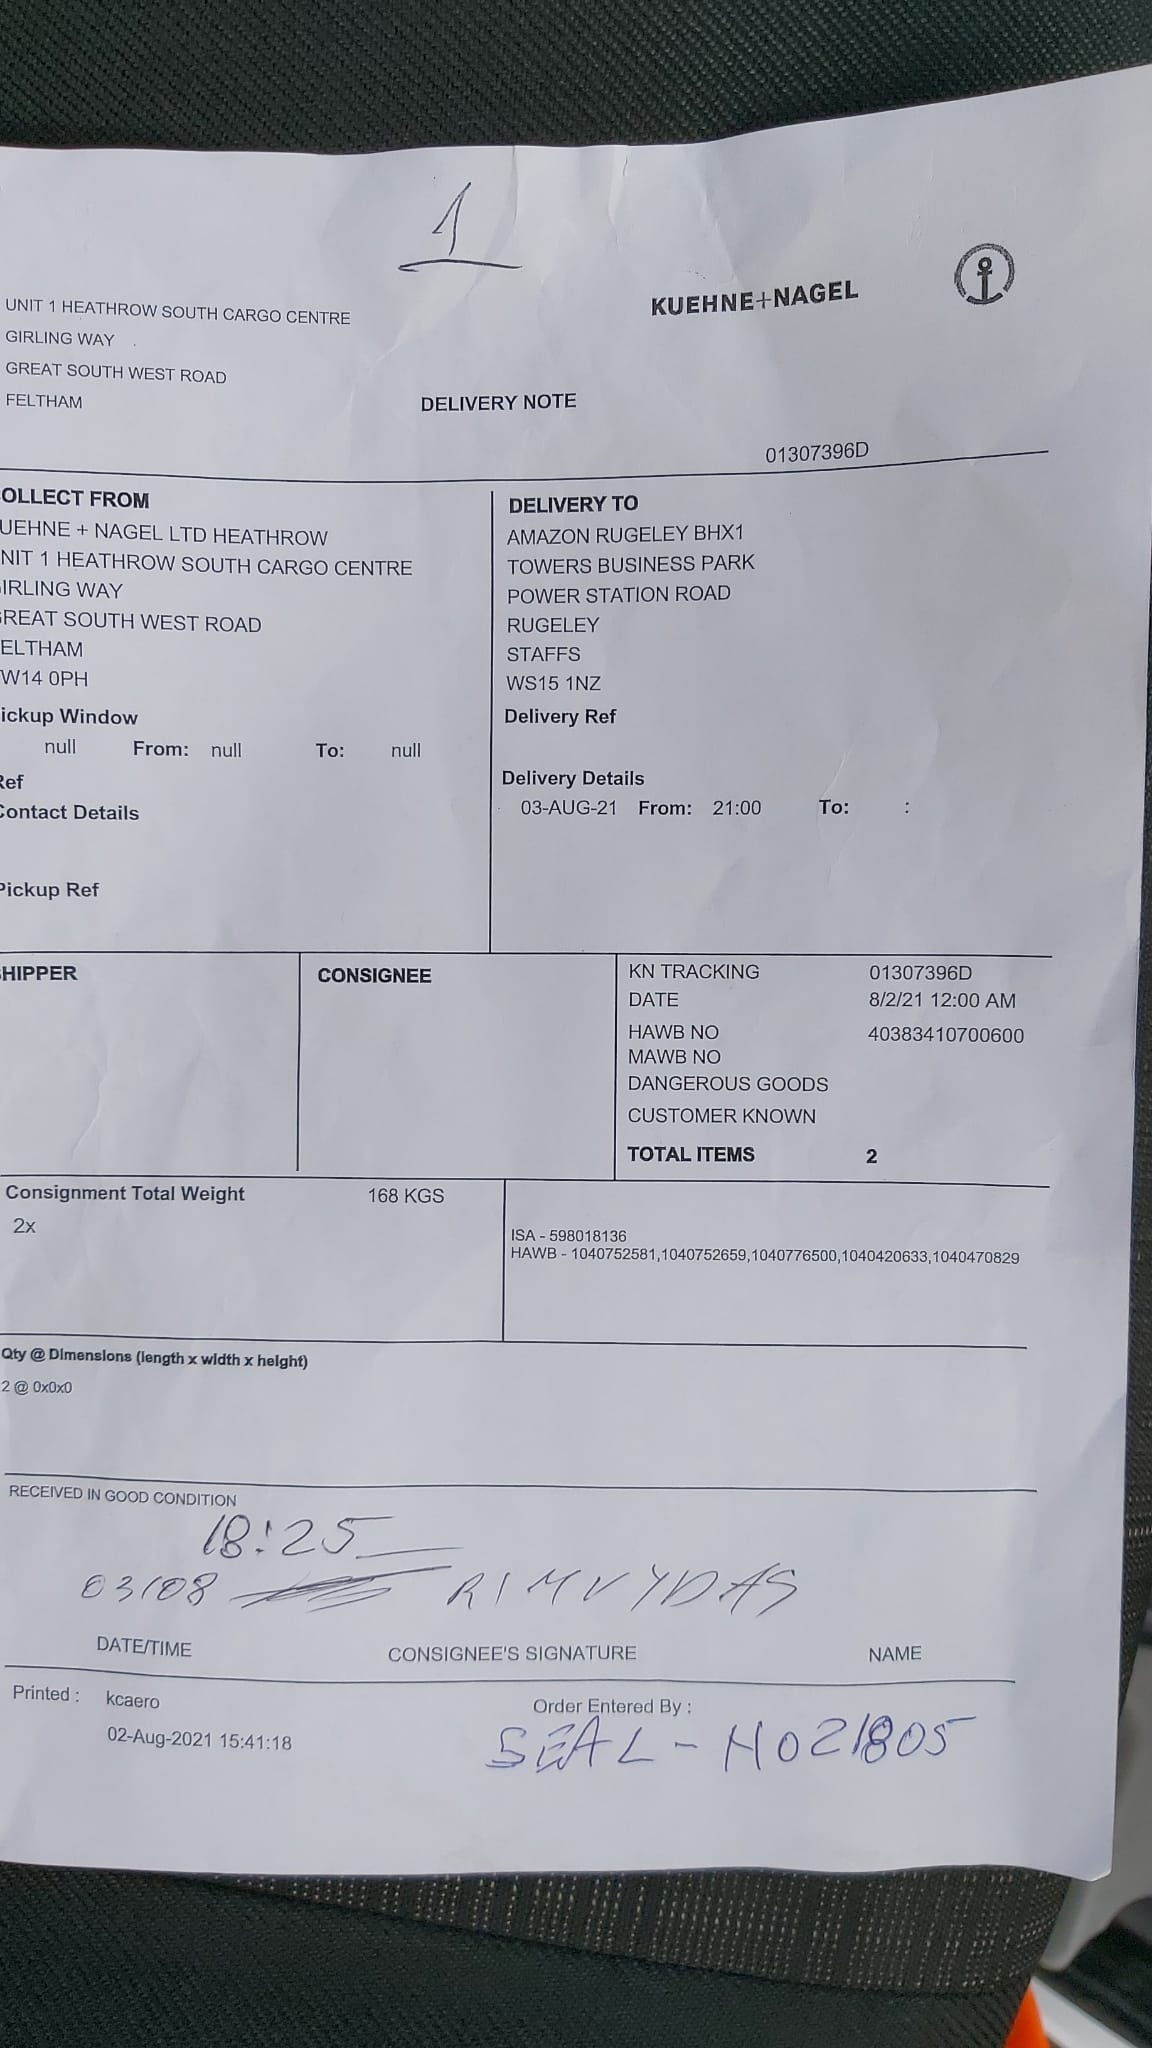 1
UNIT 1 HEATHROW SOUTH CARGO CENTRE
GIRLING WAY
GREAT SOUTH WEST ROAD
FELTHAM
KUEHNE+NAGEL
DELIVERY NOTE
01307396D
OLLECT FROM
UEHNE + NAGEL LTD HEATHROW
NIT 1 HEATHROW SOUTH CARGO CENTRE
IRLING WAY
REAT SOUTH WEST ROAD
ELTHAM
W14 0PH
ickup Window
null From: null To: null
Ref
Contact Details
Pickup Ref
DELIVERY TO
AMAZON RUGELEY BHX1
TOWERS BUSINESS PARK
POWER STATION ROAD
RUGELEY
STAFFS
WS15 1NZ
Delivery Ref
Delivery Details
03-AUG-21 From: 21:00 To: :
HIPPER
CONSIGNEE
KN TRACKING 01307396D
DATE 8/2/21 12:00 AM
HAWB NO 40383410700600
MAWB NO
DANGEROUS GOODS
CUSTOMER KNOWN
TOTAL ITEMS 2
Consignment Total Weight 168 KGS
2x
ISA - 598018136
HAWB - 1040752581,1040752659,1040776500,1040420633,1040470829
Qty @ Dimensions (length x width x height)
2 @ 0x0x0
RECEIVED IN GOOD CONDITION
18:25
03/08 RIMVYDAS
DATE/TIME CONSIGNEE'S SIGNATURE NAME
Printed : kcaero
02-Aug-2021 15:41:18
Order Entered By :
SEAL - H021805